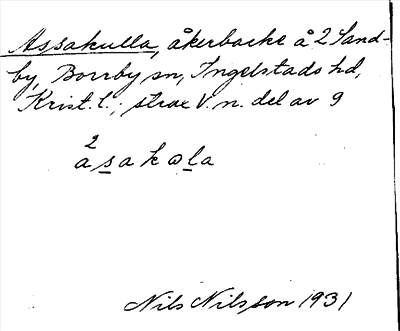 Assakulla, åkerbacke å 2 Sand-
by, Borrby sn, Ingelstads hd,
Krist. l.; strax V. n. del av 9
2
asakωla
Nils Nilsson 1931